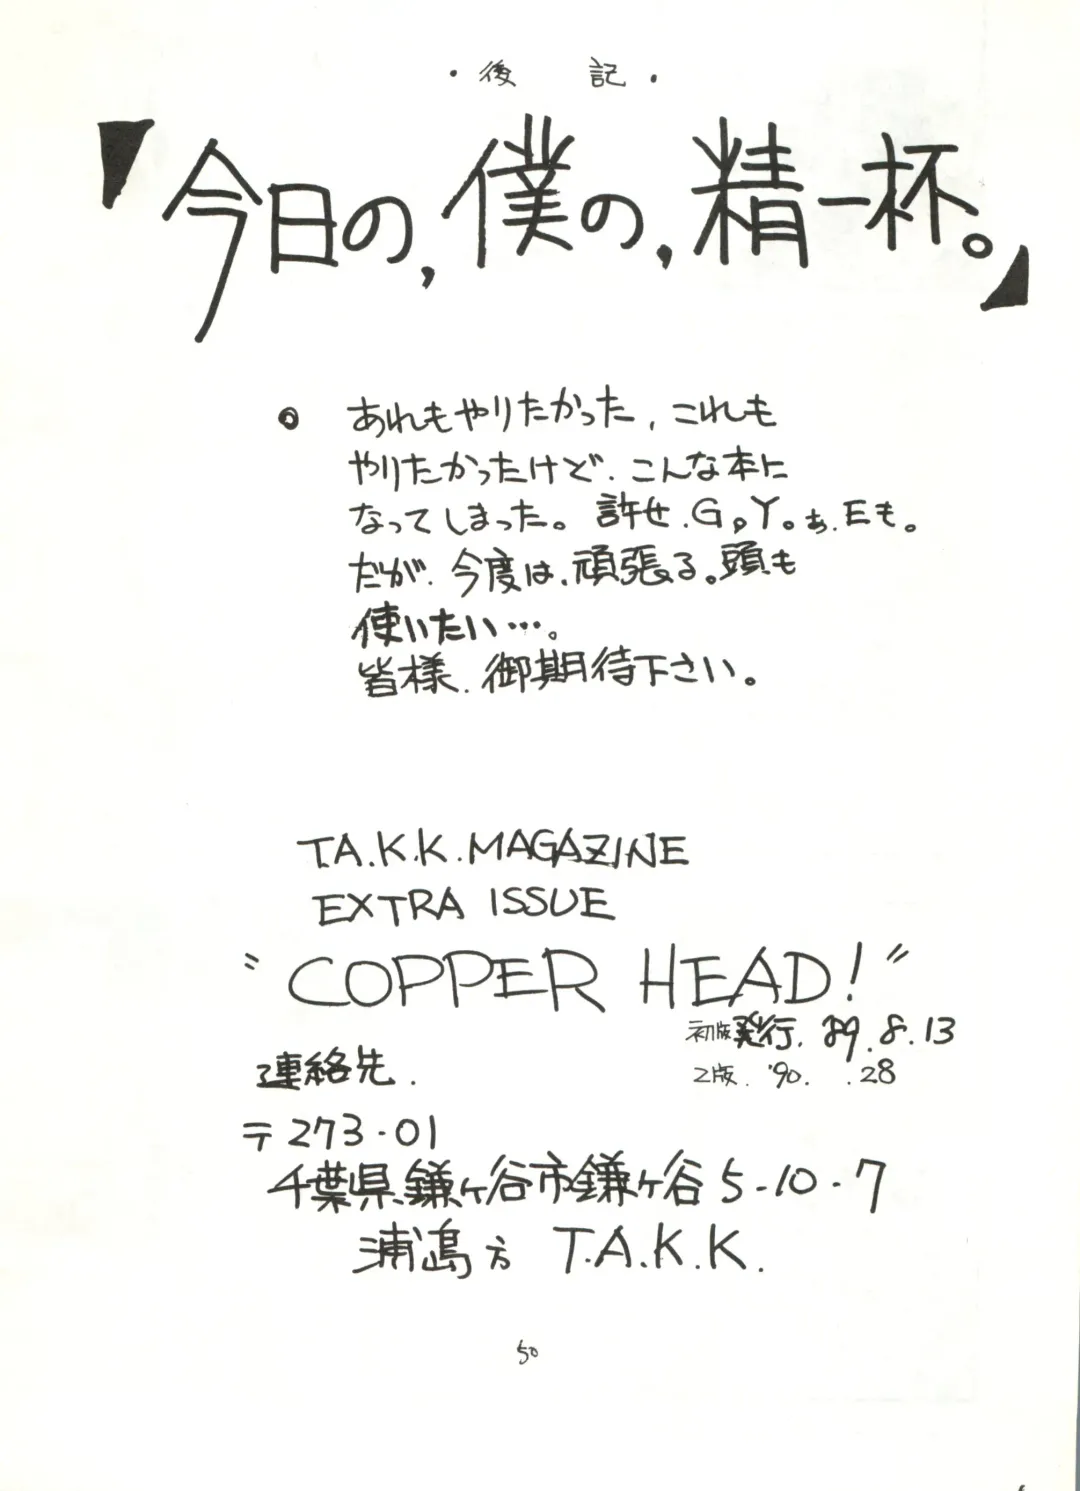 ・後 記・
『今日の,僕の,精一杯。』
。あれもやりたかった、これも
やりたかったけど、こんな本に
なってしまった。許せ、G。Y。あ、Eも。
だが、今度は、頑張る。頭も
使いたい…。
皆様、御期待下さい。
T.A.K.K.MAGAZINE
EXTRA ISSUE
"COPPER HEAD!"
初版発行. '89.8.13
2版. '90. .28
連絡先.
〒273-01
千葉県鎌ヶ谷市鎌ヶ谷5-10-7
浦島方 T.A.K.K.
50